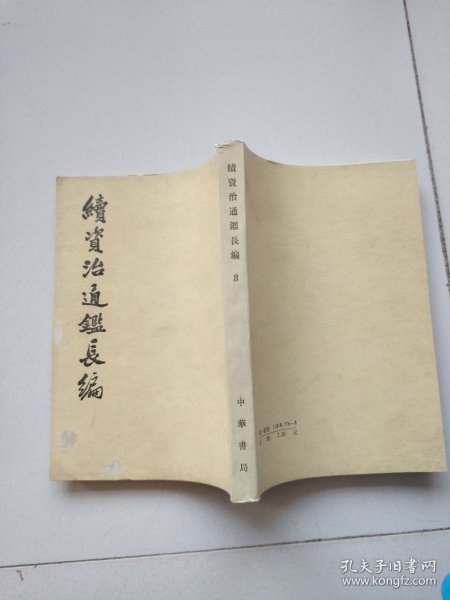 續資治通鑑長編
續資治通鑑長編 8
中華書局
孔夫子旧书网
www.kongfz.com